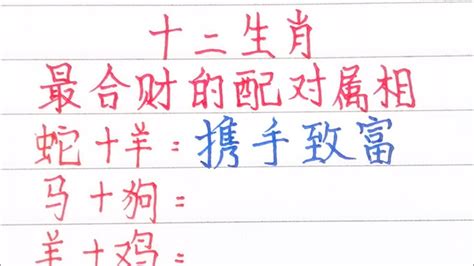 十二生肖
最合财的配对属相
蛇+羊：携手致富
马+狗：
羊+鸡：